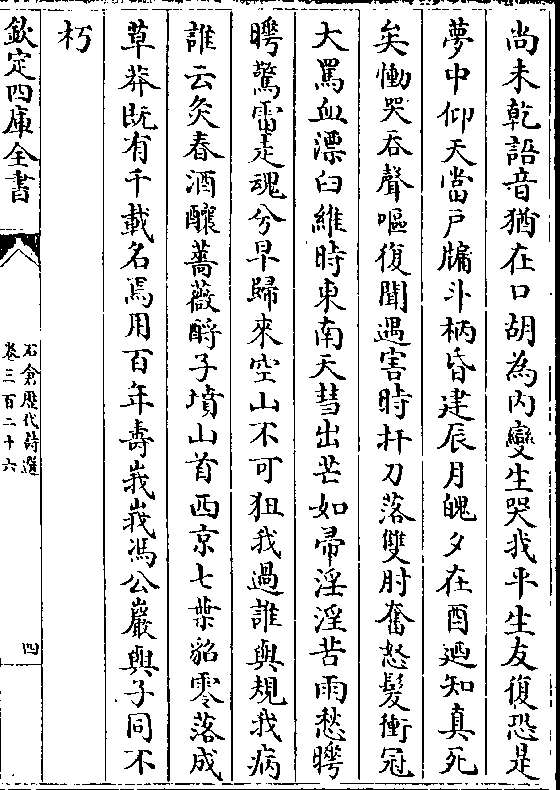 尚未乾語音猶在口胡為内變生哭我平生友復恐是
夢中仰天當戸牖斗柄昏建辰月魄夕在酉廼知真死
矣慟哭吞聲嘔復聞遇害時扞刀落雙肘奮怒髮衝冠
大罵血漂臼維時東南天彗出芒如帚淫淫苦雨愁曄
曄驚雷走魂兮早歸來空山不可狃我過誰與規我病
誰云灸春酒釀薔薇酹子墳山首西京七葉貂零落成
草莽既有千載名焉用百年壽峩峩馮公巖與子同不
朽
欽定四庫全書
石倉歴代詩選
卷三百二十六
四